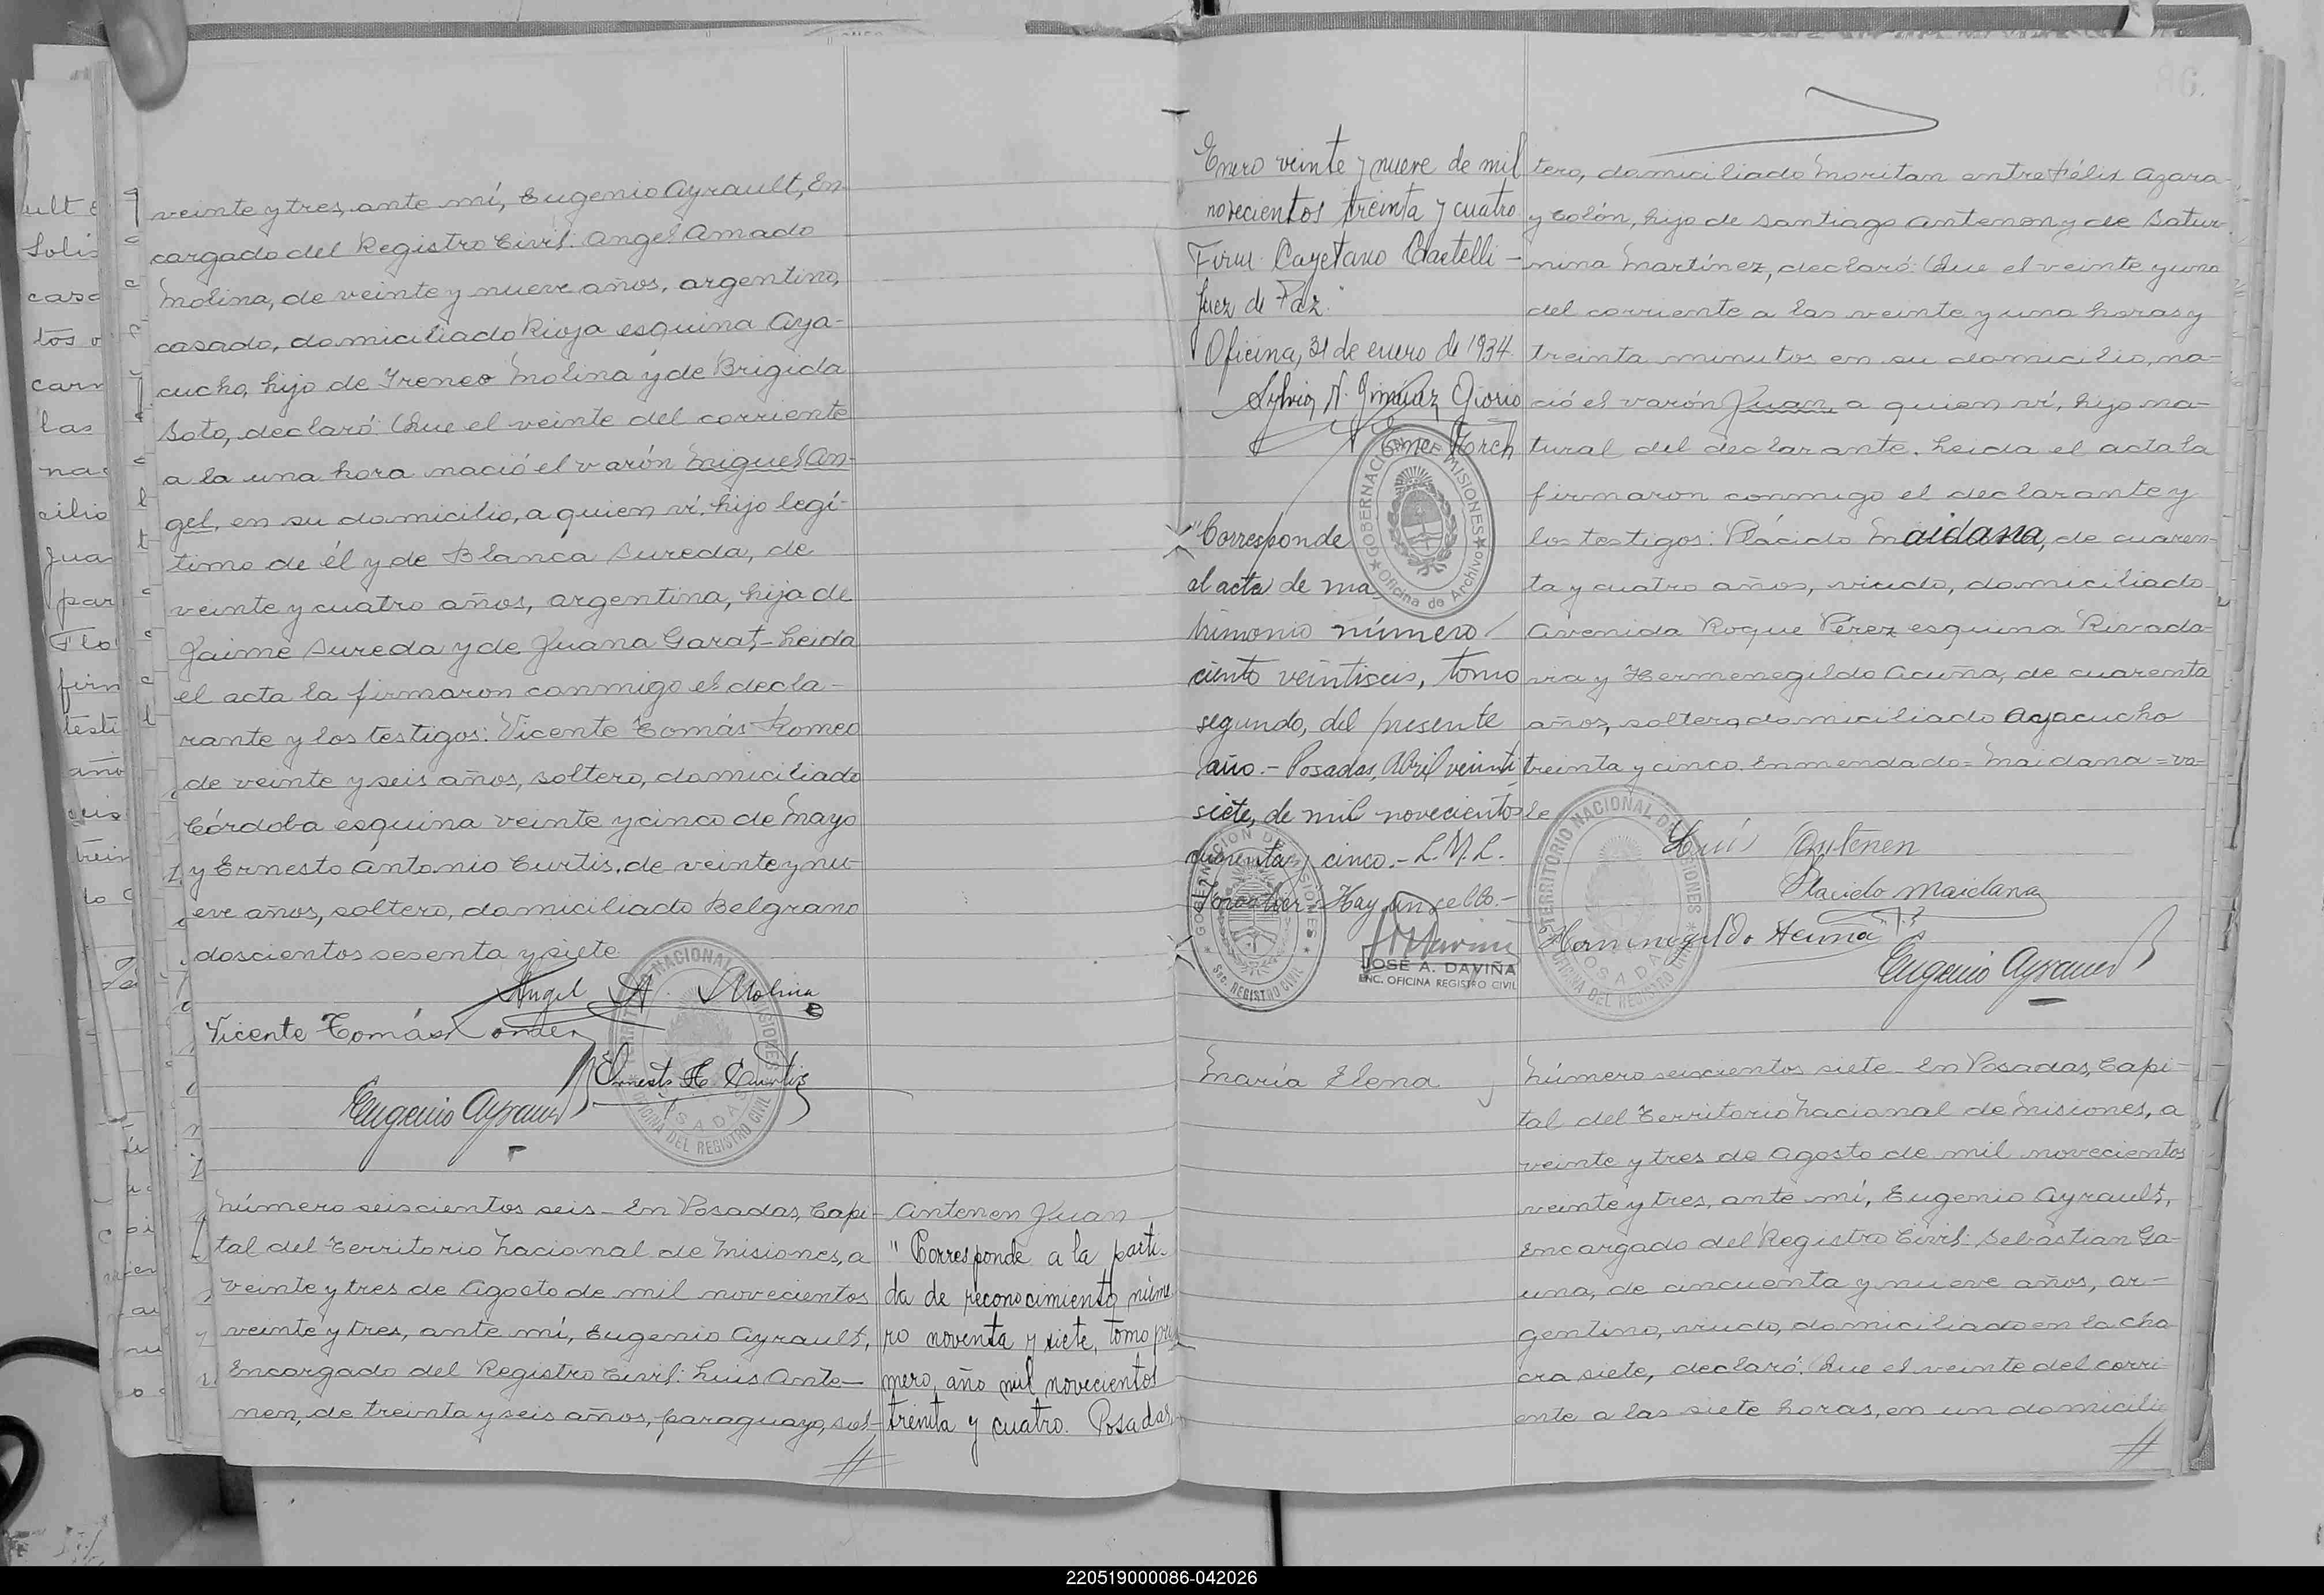 veinte y tres, ante mí, Eugenio Ayrault, En-
cargado del Registro Civil: Angel Amado
Molina, de veinte y nueve años, argentino,
casado, domiciliado Rioja esquina Aya-
cucho, hijo de Ireneo Molina y de Brigida
Soto, declaró: Que el veinte del corriente
a la una hora nació el varón Miguel An-
gel, en su domicilio, a quien ví, hijo legí-
timo de él y de Blanca Sureda, de
veinte y cuatro años, argentina, hija de
Jaime Sureda y de Juana Garat,- Leida
el acta la firmaron conmigo el decla-
rante y los testigos: Vicente Tomás Romeo
de veinte y seis años, soltero, domiciliado
Córdoba esquina veinte y cinco de Mayo
y Ernesto Antonio Curtis, de veinte y nu-
eve años, soltero, domiciliado Belgrano
doscientos sesenta y siete
Angel A. Molina
Vicente Tomás
Ernesto A. Curtis
Eugenio Ayrault
TERRITORIO NACIONAL DE MISIONES
POSADAS
OFICINA DEL REGISTRO CIVIL
Número seiscientos seis - En Posadas, Capi-
tal del Territorio Nacional de Misiones, a
veinte y tres de Agosto de mil novecientos
veinte y tres, ante mí, Eugenio Ayrault,
Encargado del Registro Civil: Luis Ante-
nen, de treinta y seis años, paraguayo, sol-
Antenen Juan
"Corresponde a la parti-
da de reconocimiento núme
ro noventa y siete, tomo pri
mero, año mil novecientos
treinta y cuatro. Posadas,
Enero veinte y nueve de mil
novecientos treinta y cuatro
Firm. Cayetano Castelli -
Juez de Paz."
Oficina, 31 de enero de 1934
Sylvia N. Giménez Giorio
Enc. Arch
GOBERNACION DE MISIONES
Oficina de Archivo
"Corresponde
al acta de ma
trimonio número
ciento veintiseis, tomo
segundo, del presente
año.- Posadas, Abril veinti
siete, de mil novecientos
cuarenta y cinco.- L.M.L.
Hay un sello.-
GOBERNACION DE MISIONES
Sec. REGISTRO CIVIL
JOSÉ A. DAVIÑA
ENC. OFICINA REGISTRO CIVIL
86.
tero, domiciliado Moritan entre Félix Azara
y Colón, hijo de Santiago Antenen y de Satur-
nina Martínez, declaró: Que el veinte y uno
del corriente a las veinte y una horas y
treinta minutos en su domicilio, na-
ció el varón Juan, a quien ví, hijo na-
tural del declarante. Leida el acta la
firmaron conmigo el declarante y
los testigos: Plácido Maidana, de cuaren-
ta y cuatro años, viudo, domiciliado
Avenida Roque Pérez esquina Rivada-
via y Hermenegildo Acuña, de cuarenta
años, soltero, domiciliado Ayacucho
treinta y cinco. Enmendado = Maidana = va-
le
Luís Antenen
Placido Maidana
Hermenegildo Acuña
Eugenio Ayrault
TERRITORIO NACIONAL DE MISIONES
POSADAS
OFICINA DEL REGISTRO CIVIL
María Elena
Número seiscientos siete - En Posadas, Capi-
tal del Territorio Nacional de Misiones, a
veinte y tres de Agosto de mil novecientos
veinte y tres, ante mí, Eugenio Ayrault,
Encargado del Registro Civil: Sebastian Ga-
una, de cincuenta y nueve años, ar-
gentino, viudo, domiciliado en la cha
cra siete, declaró: Que el veinte del corri-
ente a las siete horas, en un domicilio
220519000086-042026